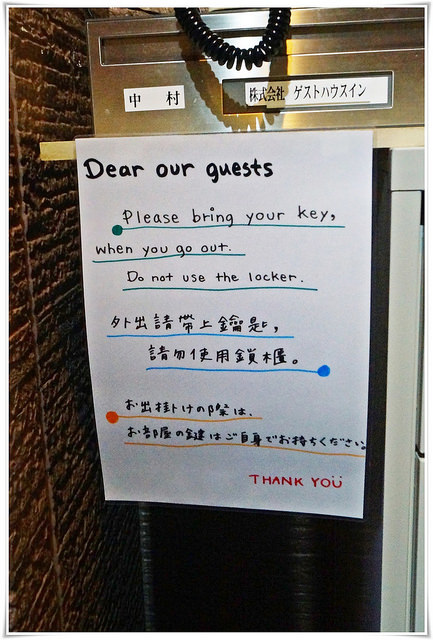 中 村
株式会社 ゲストハウスイン
Dear our guests
Please bring your key,
when you go out.
Do not use the locker.
外出請帶上鑰是,
請勿使用鎖櫃。
お出掛けの際は、
お部屋の鍵はご自身でお持ちください
THANK YOU